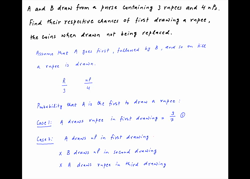 A and B draw from a purse containing 3 rupees and 4 nPs.
Find their respective chances of first drawing a rupee,
the coins when drawn not being replaced.
Assume that A goes first, followed by B, and so on till
a rupee is drawn.
R nP
3 4
Probability that A is the first to draw a rupee:
Case 1: A draws rupee in first drawing = 3/7 ①
Case 2: A draws nP in first drawing
x B draws nP in second drawing
x A draws rupee in third drawing